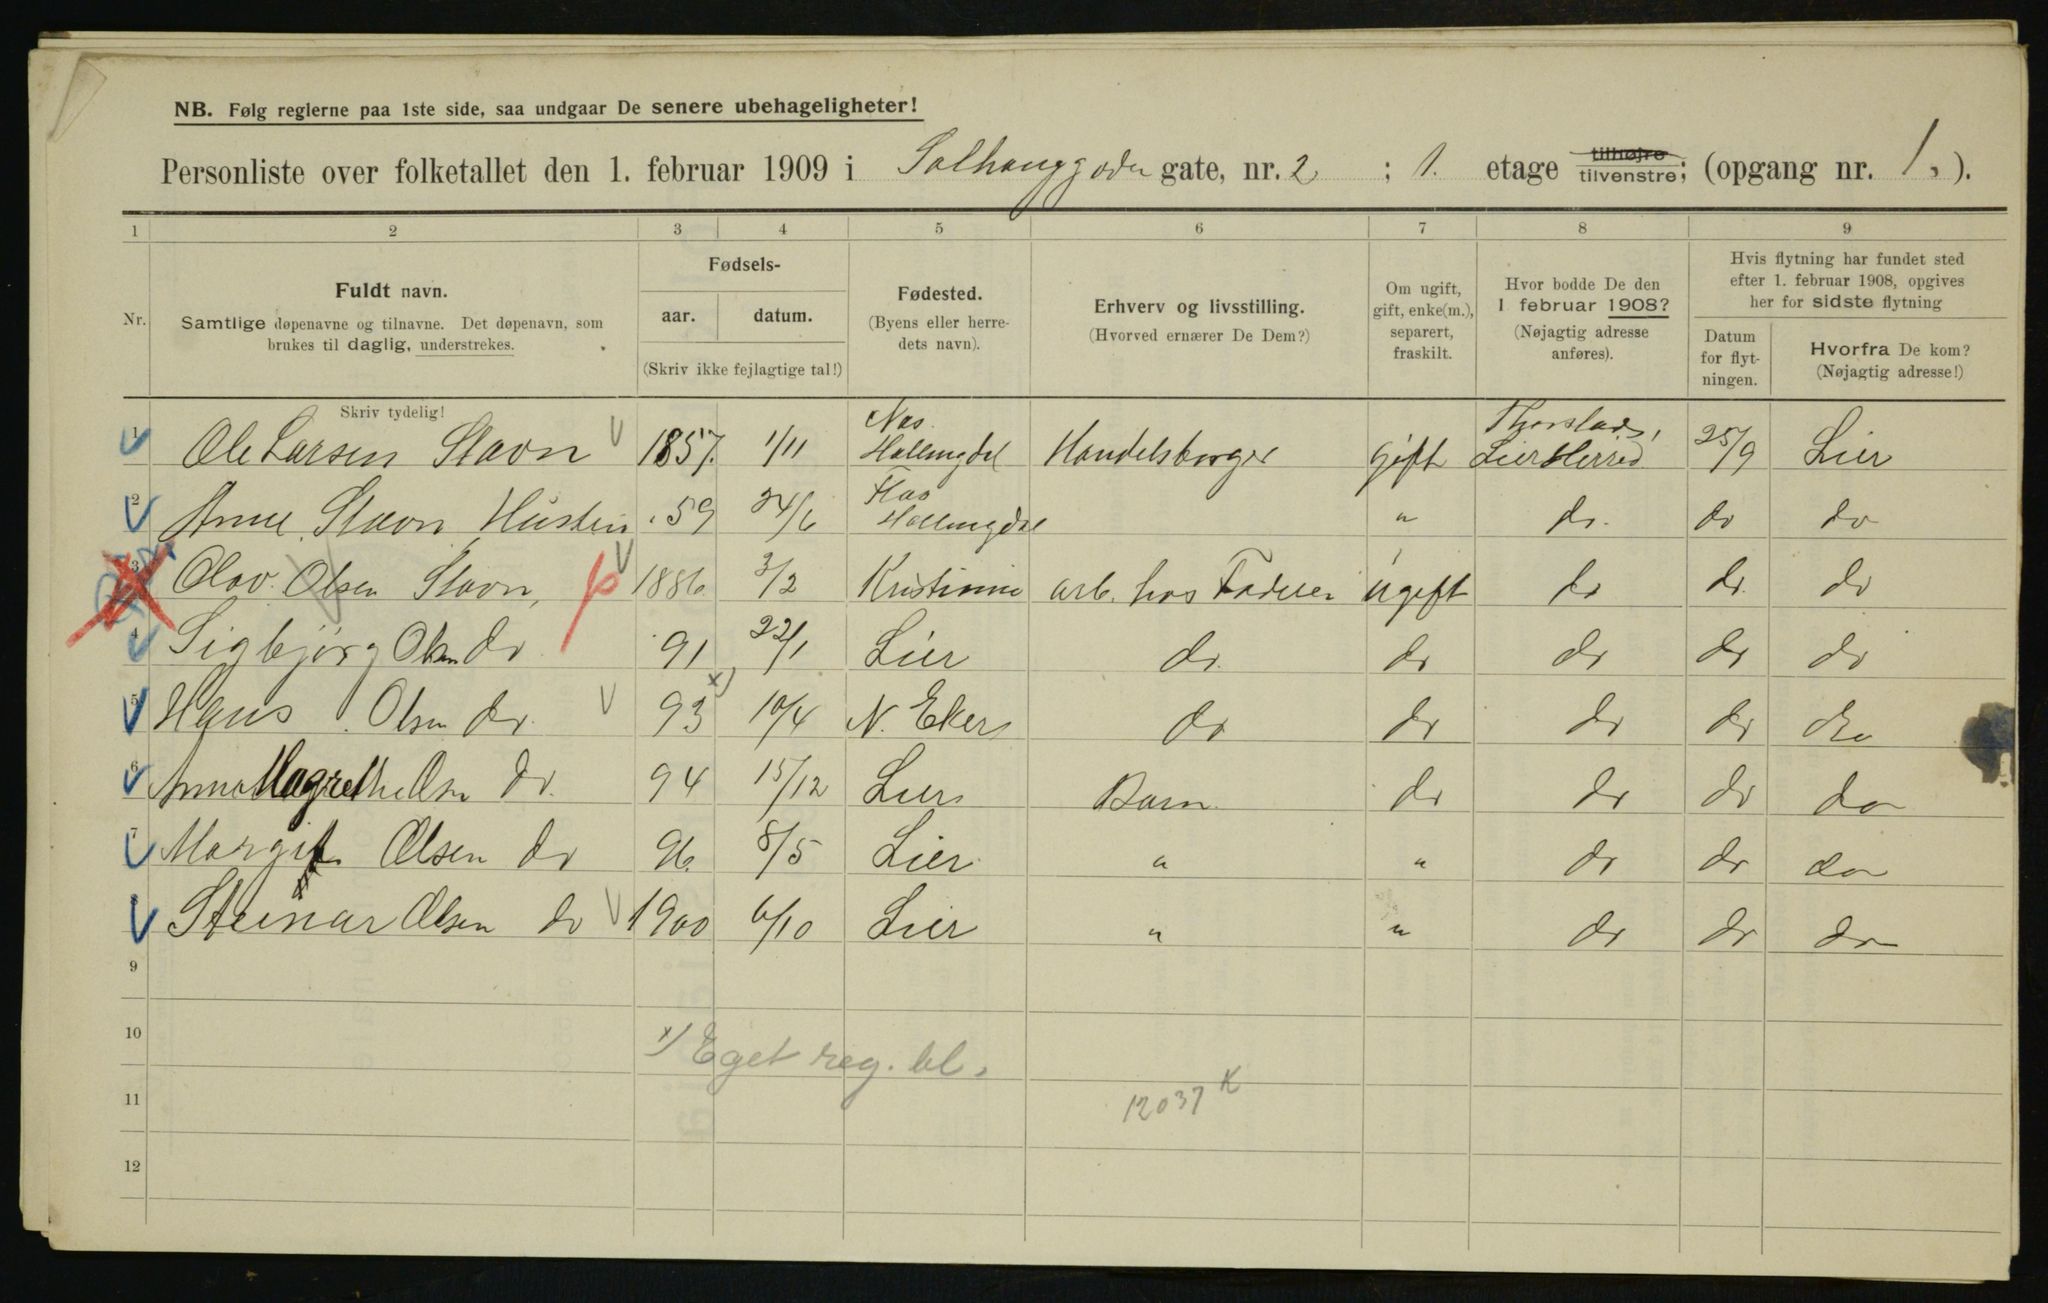 NB. Følg reglerne paa 1ste side, saa undgaar De senere ubehageligheter!
Personliste over folketallet den 1. februar 1909 i Solhauggaden gate, nr. 2 ; 1. etage tilhøjre tilvenstre; (opgang nr. 1, ).
1 2 3 4 5 6 7 8 9
Nr.
Fuldt navn.
Samtlige døpenavne og tilnavne. Det døpenavn, som
brukes til daglig, understrekes.
Skriv tydelig!
Fødsels-
aar. datum.
(Skriv ikke fejlagtige tal!)
Fødested.
(Byens eller herre-
dets navn).
Erhverv og livsstilling.
(Hvorved ernærer De Dem?)
Om ugift,
gift, enke(m.),
separert,
fraskilt.
Hvor bodde De den
1 februar 1908?
(Nøjagtig adresse
anføres).
Hvis flytning har fundet sted
efter 1. februar 1908, opgives
her for sidste flytning
Datum
for flyt-
ningen.
Hvorfra De kom?
(Nøjagtig adresse!)
1 Ole Larsen Stavn 1857. 1/11 Nas. Hallingdal Handelsborger gift Lier Herred 25/9 Lier
2 Anne Stavn Hustru 59 24/6 Hallingdal " do. do do
3 Olav Olsen Stavn, 1886 3/2 Kristiania arb. hos Faderen ugift do do do
4 Sigbjørg Olsen do 91 22/1 Lier do. do do do do
5 Hans Olsen do. 93 x) 10/4 N. Eker do do do do do
6 Anna Magrethe Olsen do. 94 15/12 Lier Barn. do do do do
7 Margit Olsen do 96. 8/5 Lier " " do do do
8 Steinar Olsen do 1900 6/10 Lier " " do do do
9
10
x) Eget reg. bl.
11
12037 K
12